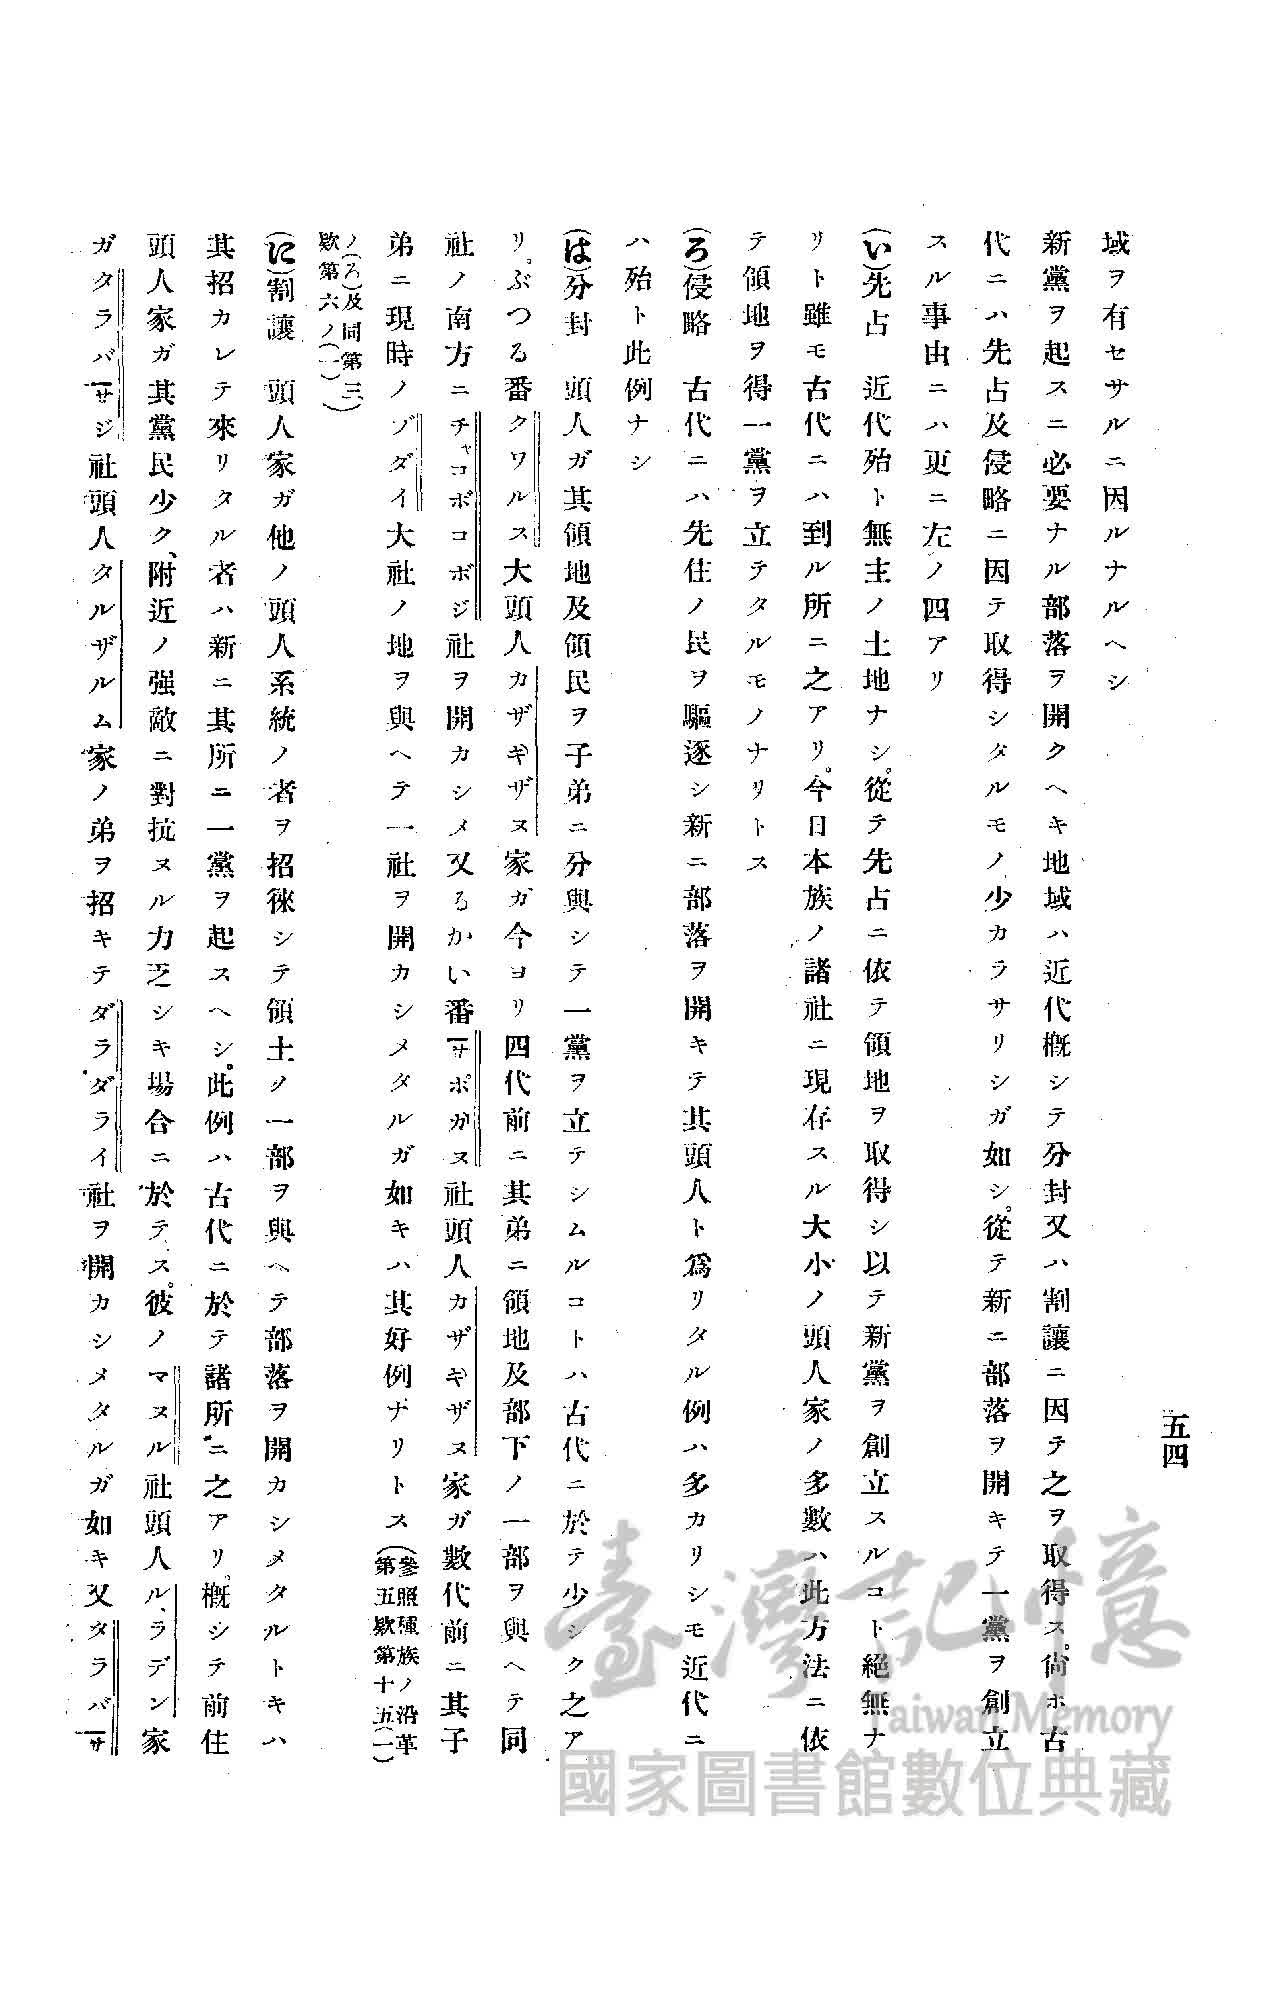 五四
域ヲ有セサルニ因ルナルヘシ
新黨ヲ起スニ必要ナル部落ヲ開クヘキ地域ハ近代概シテ分封又ハ割讓ニ因テ之ヲ取得ス。尙ホ古
代ニハ先占及侵略ニ因テ取得シタルモノ少カラサリシガ如シ。從テ新ニ部落ヲ開キテ一黨ヲ創立
スル事由ニハ更ニ左ノ四アリ
(い)先占 近代殆ト無主ノ土地ナシ。從テ先占ニ依テ領地ヲ取得シ以テ新黨ヲ創立スルコト絕無ナ
リト雖モ古代ニハ到ル所ニ之アリ。今日本族ノ諸社ニ現存スル大小ノ頭人家ノ多數ハ此方法ニ依
テ領地ヲ得一黨ヲ立テタルモノナリトス
(ろ)侵略 古代ニハ先住ノ民ヲ驅逐シ新ニ部落ヲ開キテ其頭人ト爲リタル例ハ多カリシモ近代ニ
ハ殆ト此例ナシ
(は)分封 頭人ガ其領地及領民ヲ子弟ニ分與シテ一黨ヲ立テシムルコトハ古代ニ於テ少シク之ア
リ。ぶつる番クワルス大頭人カザギザヌ家ガ今ヨリ四代前ニ其弟ニ領地及部下ノ一部ヲ與ヘテ同
社ノ南方ニチャコボコボジ社ヲ開カシメ又るかい番サポガヌ社頭人カザギザヌ家ガ數代前ニ其子
弟ニ現時ノゾダイ大社ノ地ヲ與ヘテ一社ヲ開カシメタルガ如キハ其好例ナリトス(參照種族ノ沿革
第五款第十五(一)
ノ(ろ)及同第三
款第六ノ(一))
(に)割讓 頭人家ガ他ノ頭人系統ノ者ヲ招徠シテ領土ノ一部ヲ與ヘテ部落ヲ開カシメタルトキハ
其招カレテ來リタル者ハ新ニ其所ニ一黨ヲ起スヘシ。此例ハ古代ニ於テ諸所ニ之アリ。概シテ前住
頭人家ガ其黨民少ク、附近ノ强敵ニ對抗スル力乏シキ場合ニ於テス。彼ノマヌル社頭人ル、ラデン家
ガタラバサジ社頭人タルザルム家ノ弟ヲ招キテダラダライ社ヲ開カシメタルガ如キ又タラバサ
臺灣記憶
Taiwan Memory
國家圖書館數位典藏